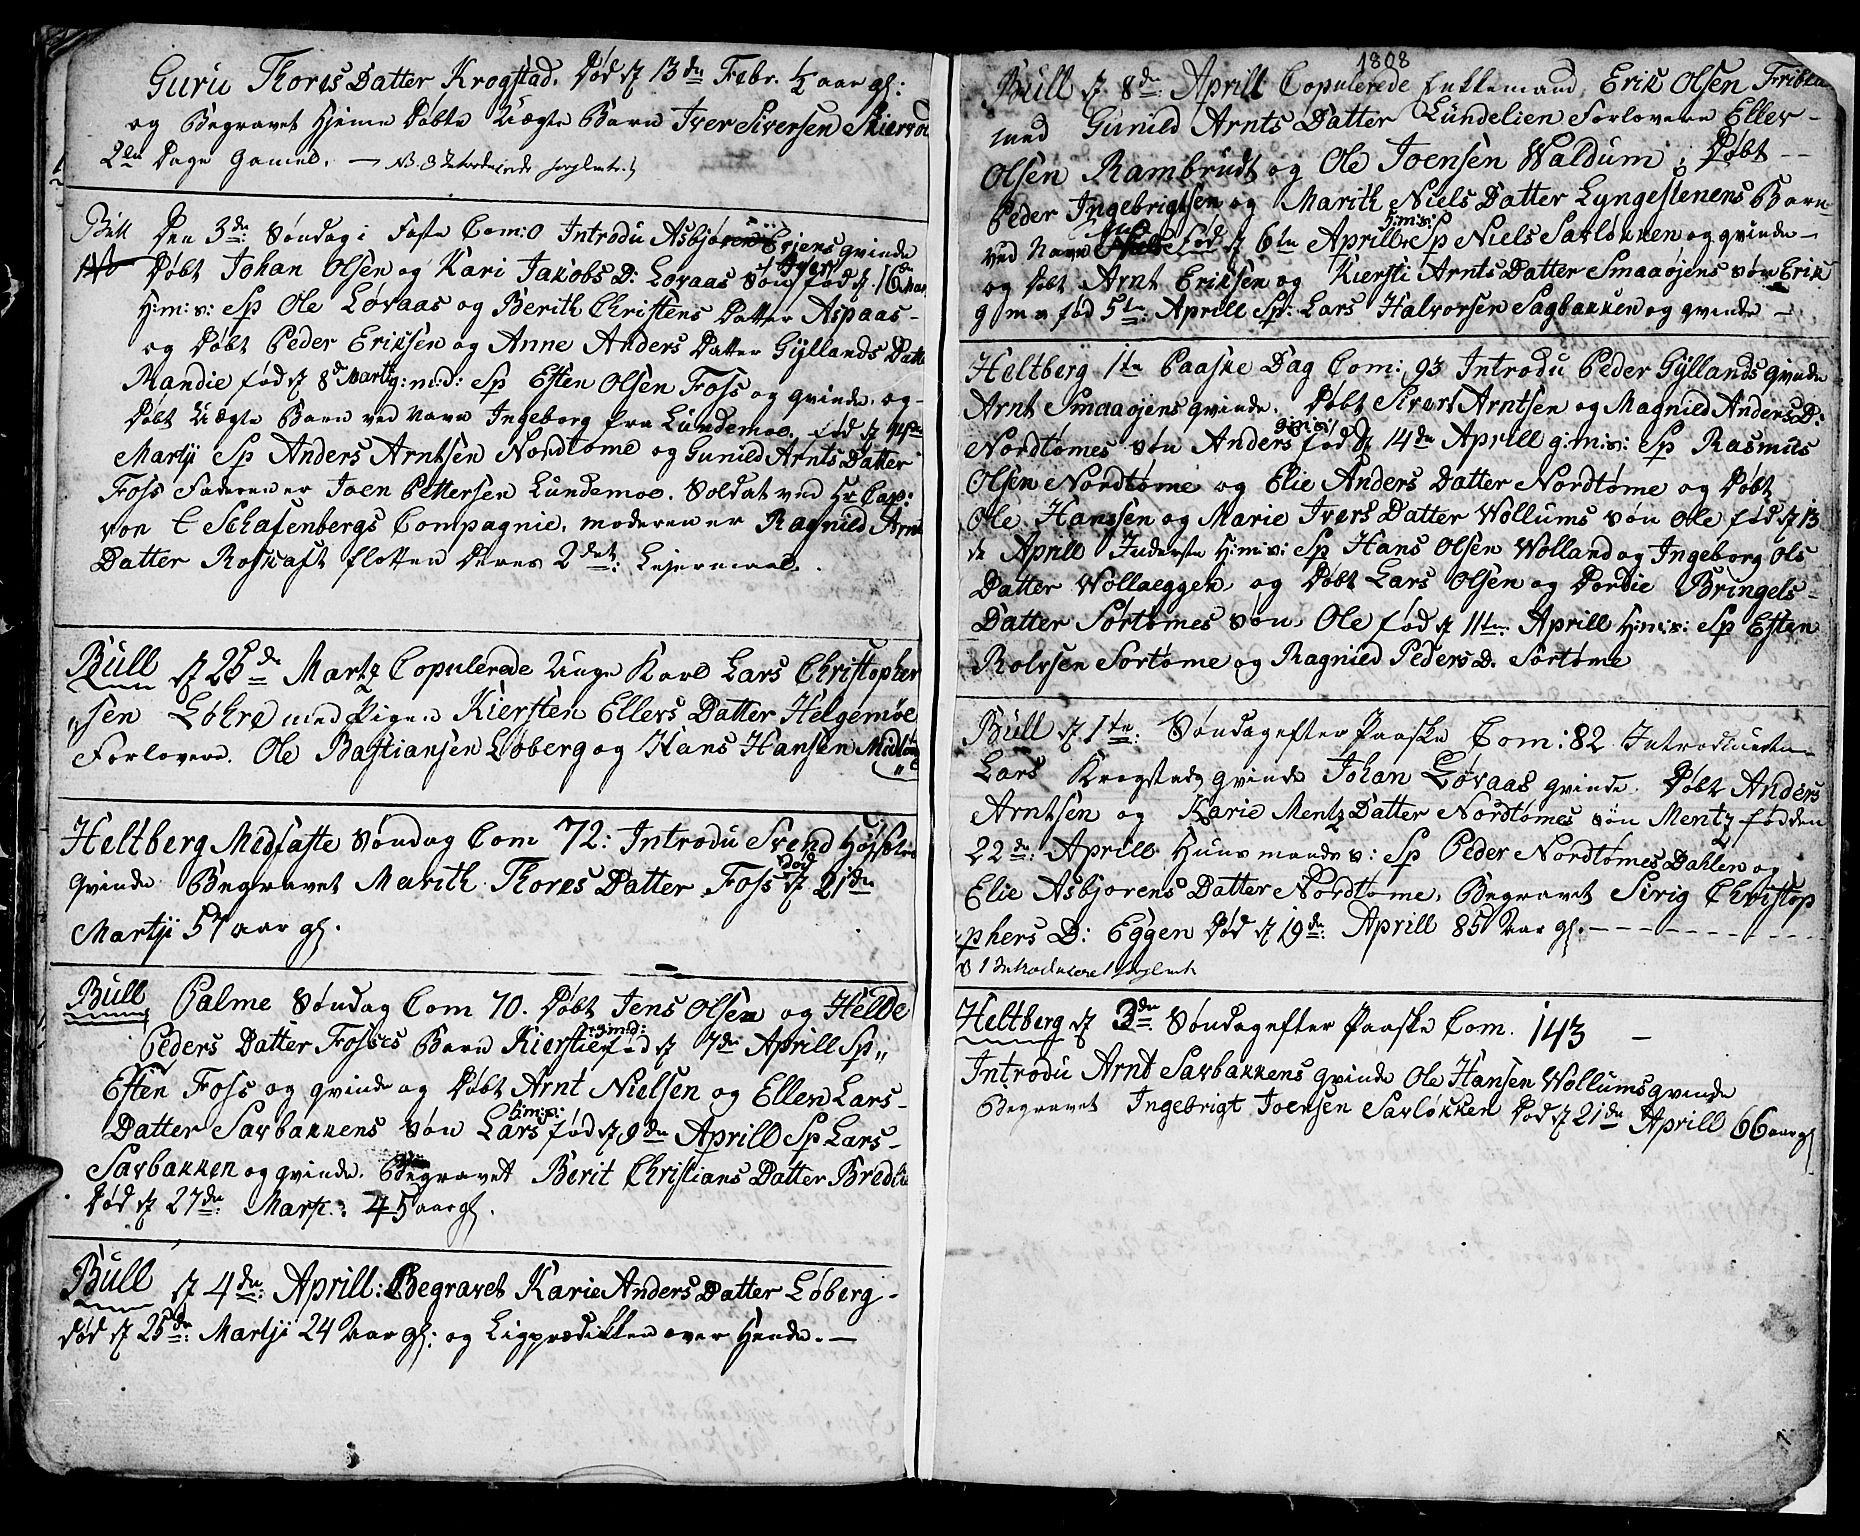 Guru Thores Datter Krogstad. Død d 13de Febr. ½ aar gl:
og Begravet Hjeme Døbte Uægte Barn Iver Siversen
2de Dage Gamel. — NB. 3 Introducerede
Büll Den 3de Søndag i Faste Com: 0 Introdu Asbjøren Evjens gvinde
Døbt Johan Olsen og Kari Jakobs D: Lovaas Søn Iver fød d 16de
H:m:s: Sp Ole Løvaas og Berith Christens Datter Aspaas-
og Døbt Peder Eriksen og Anne Anders Datter Gyllands Datter
Mandie fød d 8d Martij g:m:d: Sp Esten Olsen Foss og gvinde. og-
Døbt Uægte Barn ved Navn Ingeborg fra Lundemoe. fød d
Martij Sp Anders Arntsen Nordtome og Gunild Arnts Datter
Foss Faderen er Joen Pettersen Lundemoe. Soldat ved Hr Cap:
von C Schafenbergs Compagnie, moderen er Ragnild Arnts
Datter Roskaft flotten Deres 2det: Lejermaal.
Büll d 25de Martz Copulerede Unge Karl Lars Christopher
"sen Løkre med Pigen Kiersten Ellers Datter Helgemoe
Forlovere. Ole Bastiansen Løberg og Hans Hansen
Heltberg Midfaste Søndag Com 72: Introdu Svend
gvinde Begravet Marith Thores Datter Foss Død d 21de
Martji 57 aar gl.
Büll Palme Søndag Com 70. Døbt Jens Olsen og Helde
Peders Datter Fosses Barn Kierstie g:m:d: fød d 7de Aprill Sp"
Esten Foss og gvinde og Døbt Arnt Nielsen og Ellen Lars-
Datter Sarbakkens Søn Lars h:m:s: fød d 9de Aprill Sp Lars-
Sarbakken og gvinde. Begravet Berit Christians Datter
Død d 27de: Mart: 45 aar gl.
Büll d 4de: Aprill: Begravet Karie Anders Datter Løberg-
død d 25de: Martji 24 Aar gl: og Ligprædikken over Hende. —
1808
Büll d. 8de: Aprill Copulerede Enkkemand Erik Olsen
med Gunild Arnts Datter Lundelien Forlovere Eller-
Olsen Rambrudt og Ole Joensen Waldum; Døbt --
Peder Ingebrigtsen og Marith Niels Datter Lyngestenens Barn
ved Navn fød d 6te Aprill h:m:s: Sp Niels Sarløkken og gvinde-
og Døbt Arnt Eriksen og Kiersti Arnts Datter Smaaøjens Søn Erik
g m s fød 5te: Aprill Sp: Lars Halvorsen Sagbakken og gvinde -
Heltberg 1te Paaske Dag Com: 93 Introdu Peder Gyllands gvinde
Arnt Smaaøjens gvinde. Døbt Sivert Arntsen og Magnild Anders D:
Nordtømes Søn Anders fød d 14de Aprill g:m:s: Sp Rasmus
Olsen Nordtøme og Elie Anders Datter Nordtøme og Døbt
Ole Hanssen og Marie Ivers Datter Wollums Søn Ole fød d 13
de Aprill Inderste H:m:s: Sp Hans Olsen Wolland og Ingeborg Ols
Datter Wollaeggen og Døbt Lars Olsen og Dordie Bringels-
Datter Sørtømes Søn Ole fød d 11te: Aprill H:m:s: Sp Esten
Rolvsen Sortøme og Ragnied Peders D. Sortøme
Büll d 1te: Søndag efter Paaske Com: 82. Introduceren
Lars Krogstads gvinde Johan Løvaas gvinde. Døbt Anders
Arntsen og Karie Mentz Datter Nordtømes Søn Mentz fødden
22de: Aprill Huusmands s: Sp Peder Nordtømes Dahlen og
Elie Asbjorens Datter Nordtøme, Begravet Sirig Christop
phers D: Eggen Død d 19de: Aprill 85 Aar gl. - - - -
Heltberg d 3de: Søndag efter Paaske Com. 143 -
Introdu Arnt Sarbakkens gvinde Ole Hansen Wollums gvinde
Begravet Ingebrigt Joensen Sarløkken Død d 21de Aprill 66 aar gl